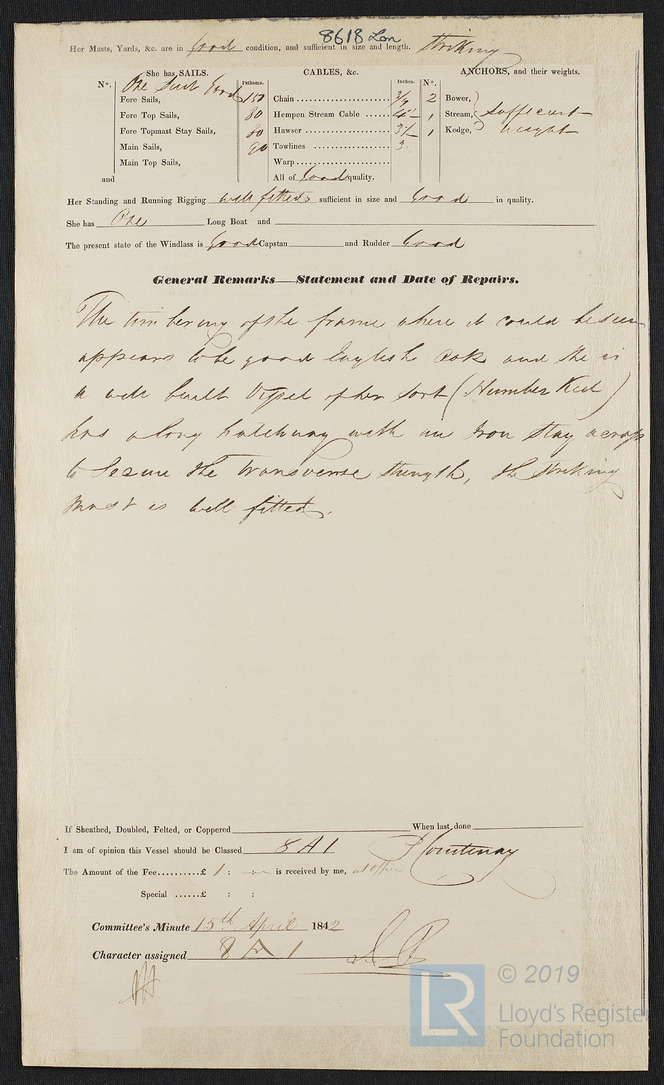 8618 Lon
Her Masts, Yards, &c. are in Good condition, and sufficient in size and length. Striking
She has SAILS. CABLES, &c. ANCHORS, and their weights.
N°. Fathoms. Inches. N°.
One Suit Good
Fore Sails, 150 Chain 2 Bower,
Fore Top Sails, 80 Hempen Stream Cable 1 Stream, sufficient
Fore Topmast Stay Sails, 80 Hawser 1 Kedge, weight
Main Sails, 90 Towlines 3
Main Top Sails, Warp
and All of Good quality.
Her Standing and Running Rigging well fitted sufficient in size and Good in quality.
She has One Long Boat and
The present state of the Windlass is Good Capstan and Rudder Good
General Remarks—Statement and Date of Repairs.
The timbering of the frame where it could be seen
appears to be good English Oak and she is
a well built Vessel of her sort (Humber Keel)
has a long hatchway with an Iron Stay across
to secure the transverse strength, the striking
mast is well fitted.
If Sheathed, Doubled, Felted, or Coppered When last done
I am of opinion this Vessel should be Classed 8 A 1 Courtenay
The Amount of the Fee..........£ 1 : is received by me,
Special ......£ : :
Committee's Minute 15th April 1842
Character assigned 8 A 1
© 2019
LR
Lloyd's Register
Foundation